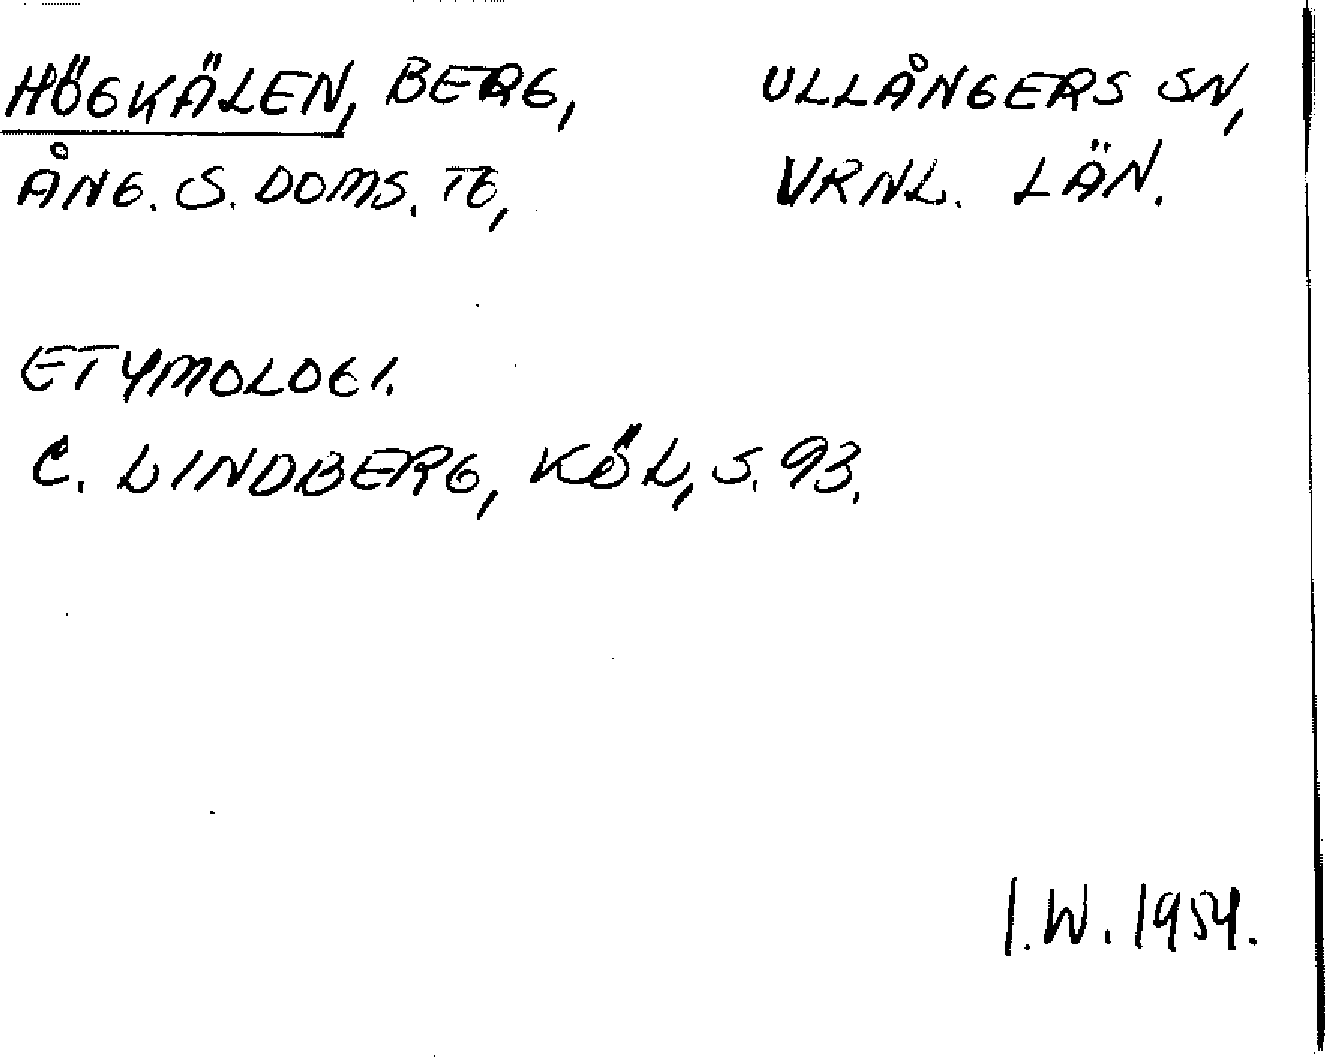 HÖGKÄLEN, BERG, ULLÅNGERS SN,
ÅNG. S. DOMS. TG, VRNL. LÄN.
ETYMOLOGI.
C. LINDBERG, KÖL, S. 93.
I.W. 1954.